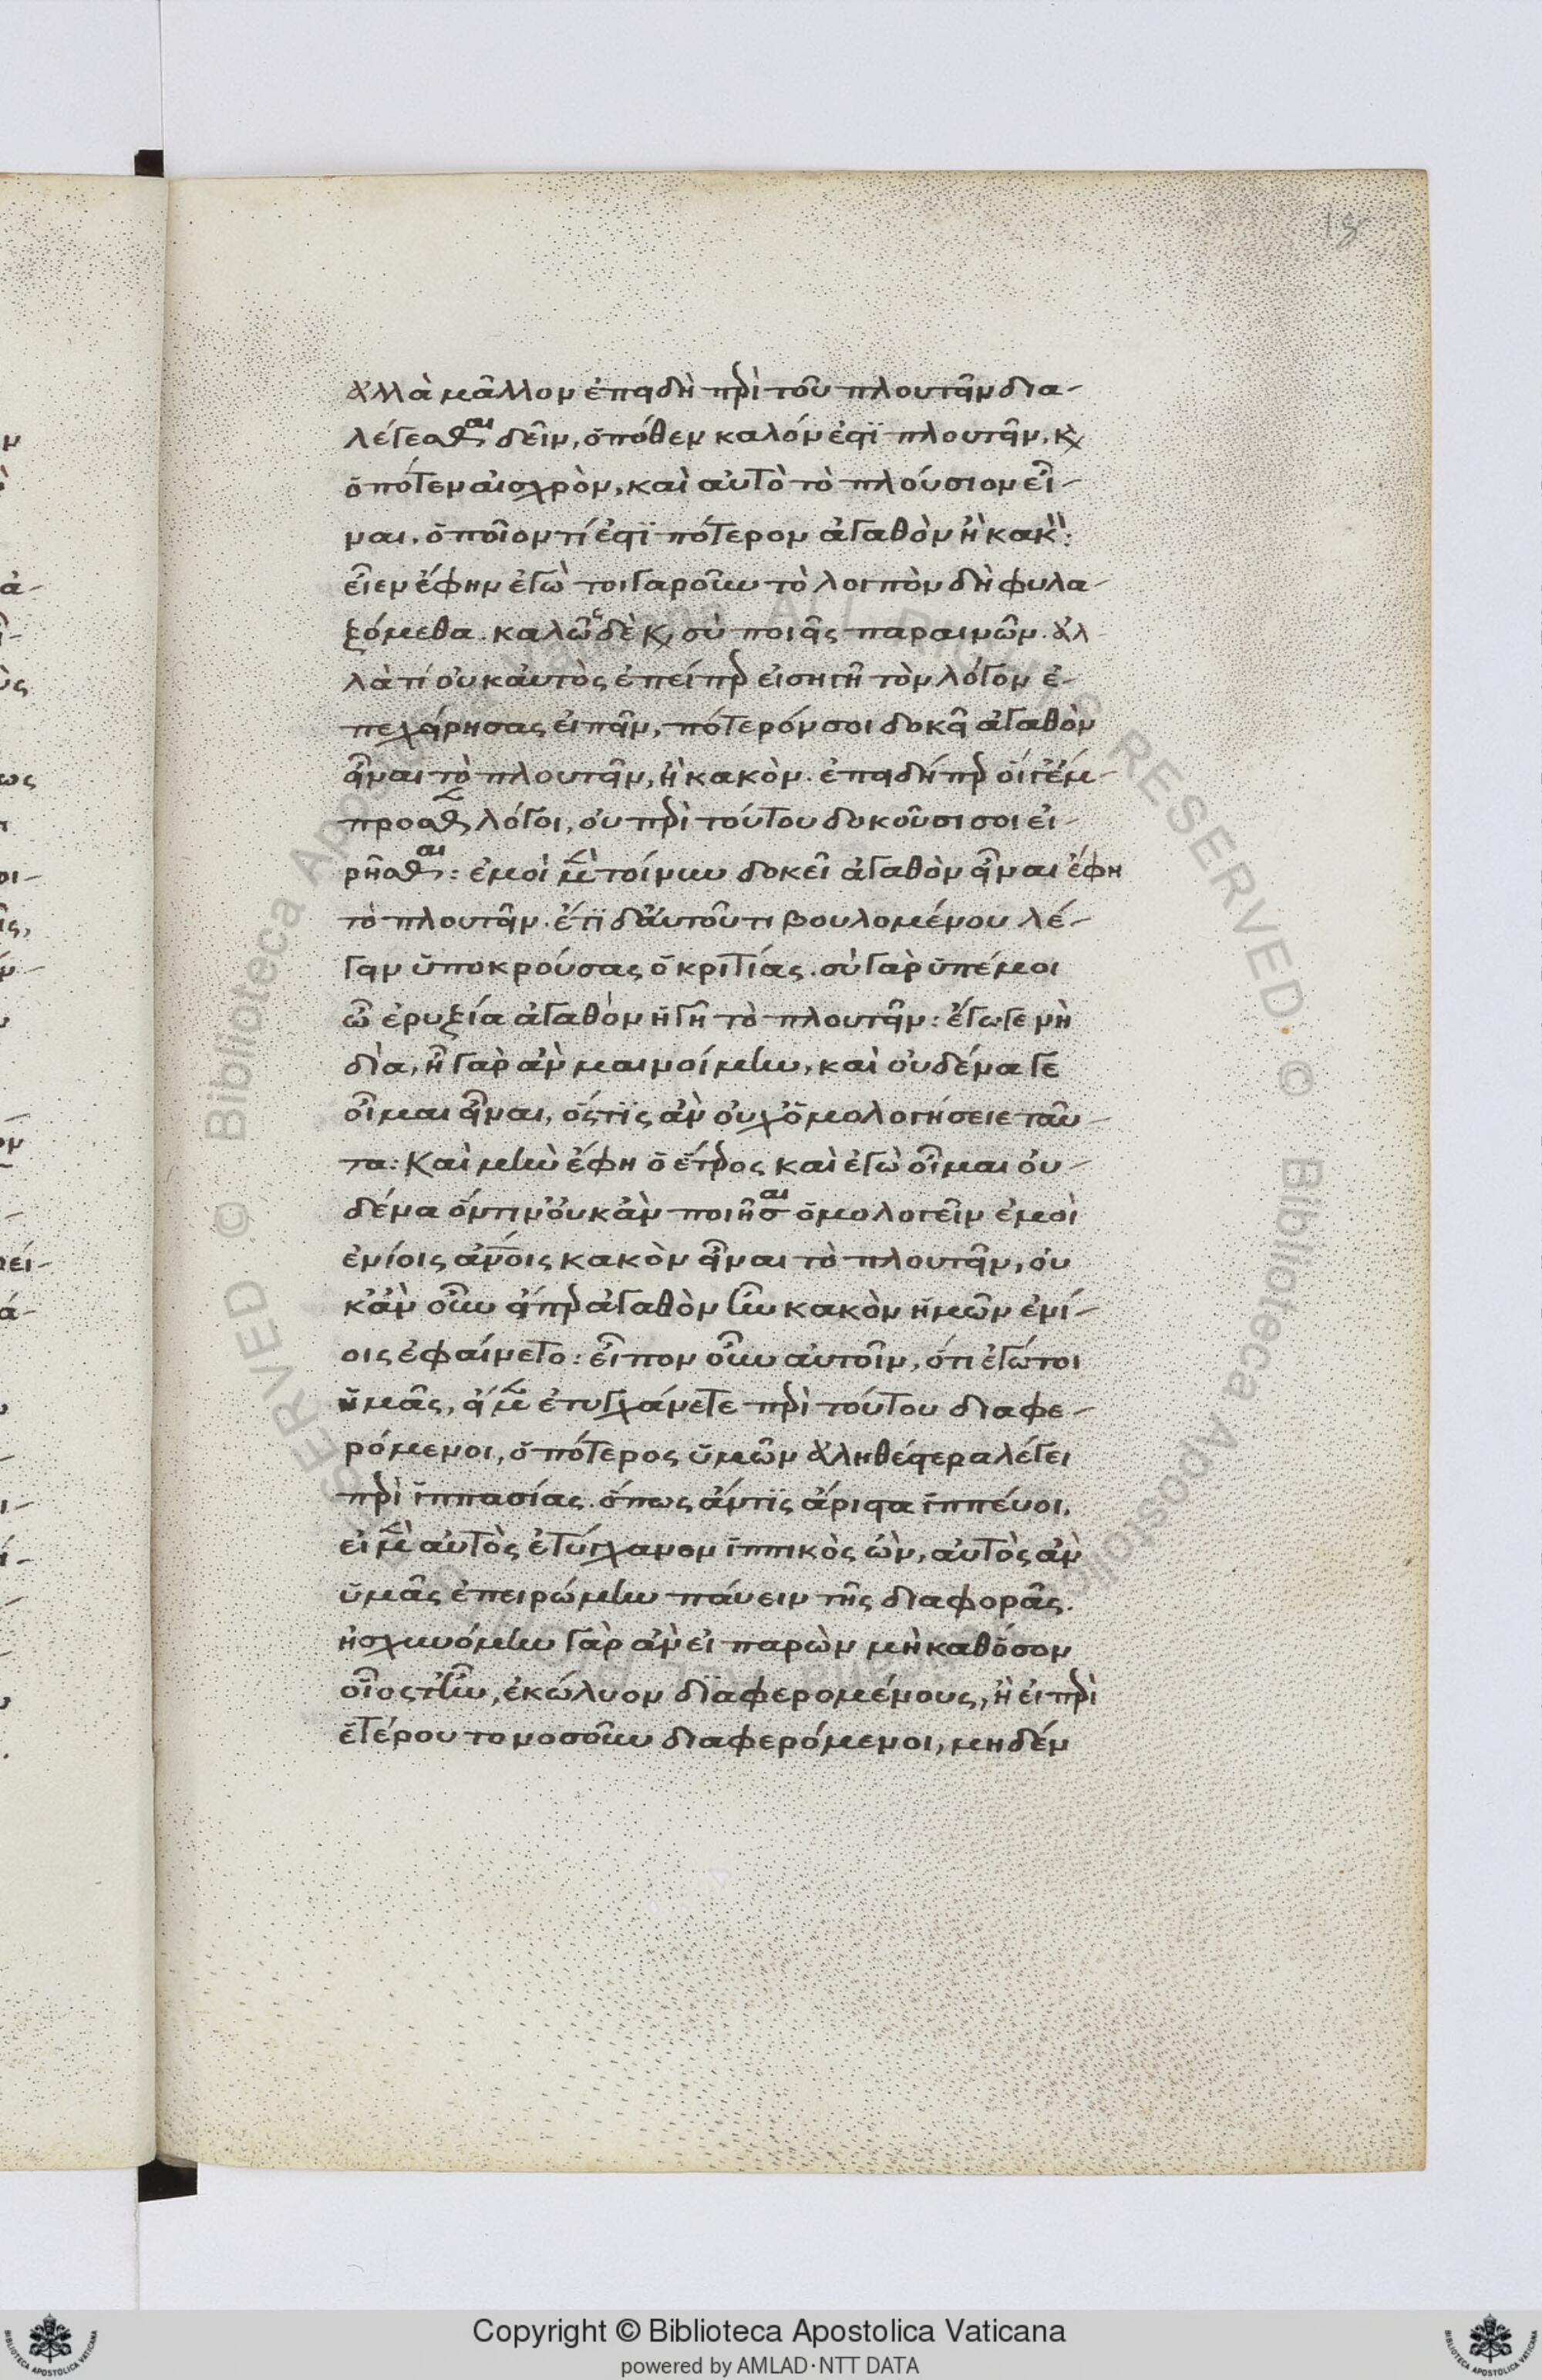 18
ἀλλὰ μᾶλλον ἐπειδὴ πρὶ τοῦ πλουτεῖν δια-
λέγεσθαι δεῖν, ὁπόθεν καλόν ἐστϊ πλουτεῖν, κ(αὶ)
ὁπότεν αἰσχρὸν, καὶ αὐτὸ τὸ πλούσιον εἶ-
ναι, ὁποῖον τί ἐστϊ πότερον ἀγαθὸν ἢ κακὸν:
εἶεν ἔφην ἐγὼ τοιγαροῦν τὸ λοιπὸν δὴ φυλα-
ξόμεθα. καλῶς δὲ κ(αὶ) σὺ ποιεῖς παραινῶν. ἀλ
λὰ τί οὐκ αὐτὸς ἐπείπερ εἰσηγῆ τὸν λόγον ἐ-
πεχείρησας εἰπεῖν, πότερόν σοι δοκεῖ ἀγαθὸν
εἶναι τὸ πλουτεῖν, ἢ κακὸν. ἐπειδήπερ οἵ γ' ἔμ-
προσθεν λόγοι, οὐ πρὶ τούτου δοκοῦσι σοι εἰ-
ρῆσθαι: ἐμοὶ μὲν τοίνυν δοκεῖ ἀγαθὸν εἶναι ἔφη
τὸ πλουτεῖν. ἔτϊ δ' αὐτοῦ τι βουλομένου λέ-
γειν ὑποκρούσας ὁ κριτίας. σὺ γὰρ ὑπέμοι
ὦ ἐρυξία ἀγαθὸν ἡγῆ τὸ πλουτεῖν: ἔγωγε νὴ
δία, ἦ γὰρ ἂν μαινοίμην, καὶ οὐδένα γε
οἶμαι εἶναι, ὅστϊς ἂν οὐχ ὁμολογήσειε ταῦ-
τα: Καὶ μὴν ἔφη ὁ ἕτερος καὶ ἐγὼ οἶμαι οὐ-
δένα ὅντιν' οὐκ ἂν ποιῆσαι ὁμολογεῖν ἐμοὶ
ἐνίοις ἀνοις κακὸν εἶναι τὸ πλουτεῖν, οὐ
κ ἂν οὖν εἴπερ ἀγαθὸν ἦν κακὸν ἡμῶν ἐνί-
οις ἐφαίνετο: εἶπον οὖν αὐτοῖν, ὅτι ἐγώ τοι
ὑμᾶς, εἰ μὲν ἐτυγχάνετε πρὶ τούτου διαφε-
ρόμενοι, ὁπότερος ὑμῶν ἀληθέστερα λέγει
πρὶ ἱππασίας. ὅπως ἄντϊς ἄριστα ἱππεύοι.
εἰ μὲν αὐτὸς ἐτύγχανον ἱππικὸς ὢν, αὐτὸς ἂν
ὑμᾶς ἐπειρώμην παύειν τῆς διαφορᾶς.
ἠσχυνόμην γὰρ ἂν εἰ παρὼν μὴ καθόσον
οἷος τ' ἦν, ἐκώλυον διαφερομένους, ἢ εἰ πρὶ
ἑτέρου του νοσοῦν διαφερόμενοι, μηδέν
Copyright © Biblioteca Apostolica Vaticana
powered by AMLAD·NTT DATA